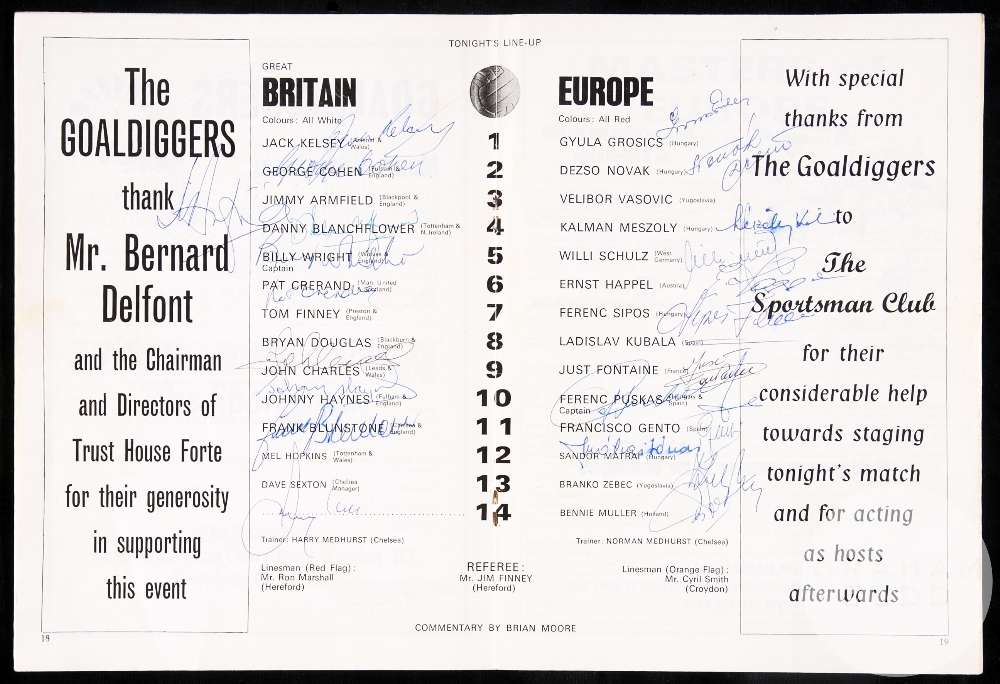 TONIGHT'S LINE-UP
The
GOALDIGGERS
thank
Mr. Bernard
Delfont
and the Chairman
and Directors of
Trust House Forte
for their generosity
in supporting
this event
18
GREAT
BRITAIN
Colours: All White
JACK KELSEY (Arsenal & Wales)
GEORGE COHEN (Fulham & England)
JIMMY ARMFIELD (Blackpool & England)
DANNY BLANCHFLOWER (Tottenham & N. Ireland)
BILLY WRIGHT (Wolves & England)
Captain
PAT CRERAND (Man. United & Scotland)
TOM FINNEY (Preston & England)
BRYAN DOUGLAS (Blackburn & England)
JOHN CHARLES (Leeds & Wales)
JOHNNY HAYNES (Fulham & England)
FRANK BLUNSTONE (Chelsea & England)
MEL HOPKINS (Tottenham & Wales)
DAVE SEXTON (Chelsea Manager)
Trainer: HARRY MEDHURST (Chelsea)
Linesman (Red Flag):
Mr. Ron Marshall
(Hereford)
1
2
3
4
5
6
7
8
9
10
11
12
13
14
REFEREE:
Mr. JIM FINNEY
(Hereford)
EUROPE
Colours: All Red
GYULA GROSICS (Hungary)
DEZSO NOVAK (Hungary)
VELIBOR VASOVIC (Yugoslavia)
KALMAN MESZOLY (Hungary)
WILLI SCHULZ (West Germany)
ERNST HAPPEL (Austria)
FERENC SIPOS (Hungary)
LADISLAV KUBALA (Spain)
JUST FONTAINE (France)
FERENC PUSKAS (Hungary & Spain)
Captain
FRANCISCO GENTO (Spain)
SANDOR MATRAI (Hungary)
BRANKO ZEBEC (Yugoslavia)
BENNIE MULLER (Holland)
Trainer: NORMAN MEDHURST (Chelsea)
Linesman (Orange Flag):
Mr. Cyril Smith
(Croydon)
With special
thanks from
The Goaldiggers
to
The
Sportsman Club
for their
considerable help
towards staging
tonight's match
and for acting
as hosts
afterwards
19
COMMENTARY BY BRIAN MOORE